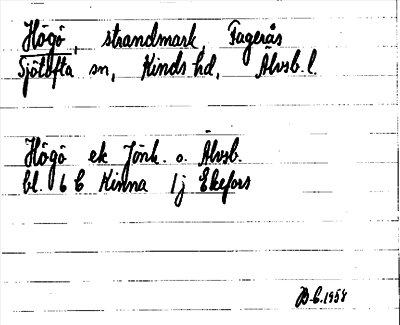 Högö, strandmark, Fagerås
Sjötofta sn, Kinds hd, Älvsb. l.
Högö ek Jönk. o. Älvsb.
bl. 6 C Kinna 1j Ekefors
B.C. 1958